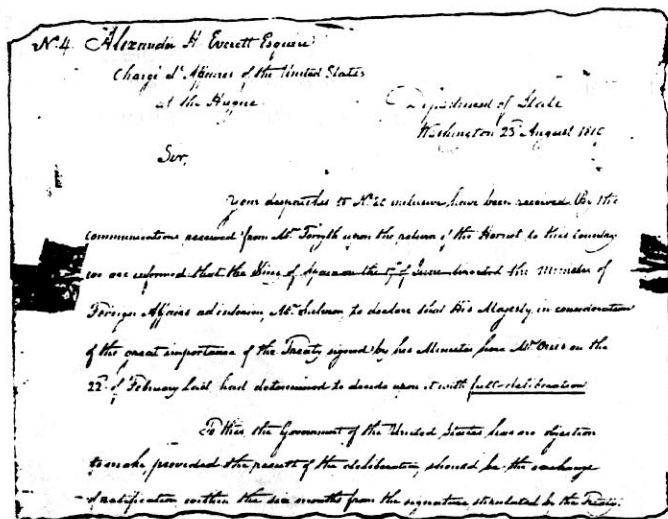 N. 4. Alexander H. Everett Esquire
Chargé d'Affaires of the United States
at the Hague.
Department of State
Washington 23 August 1819
Sir,
Your despatches to N. inclusive, have been received. By the
communications received from Mr. Forsyth upon the return of the Hornet to this Country
we are informed that the King of Spain on the 17 of June directed the Minister of
Foreign Affairs ad interim, Mr. Salmon, to declare that His Majesty, in consideration
of the great importance of the Treaty signed by his Minister here Mr. Onis on the
22 of February last had determined to decide upon it with full deliberation
To this, the Government of the United States has no objection
to make, provided the result of the deliberation should be the exchange
of ratification within the six months from the signature stipulated by the Treaty.